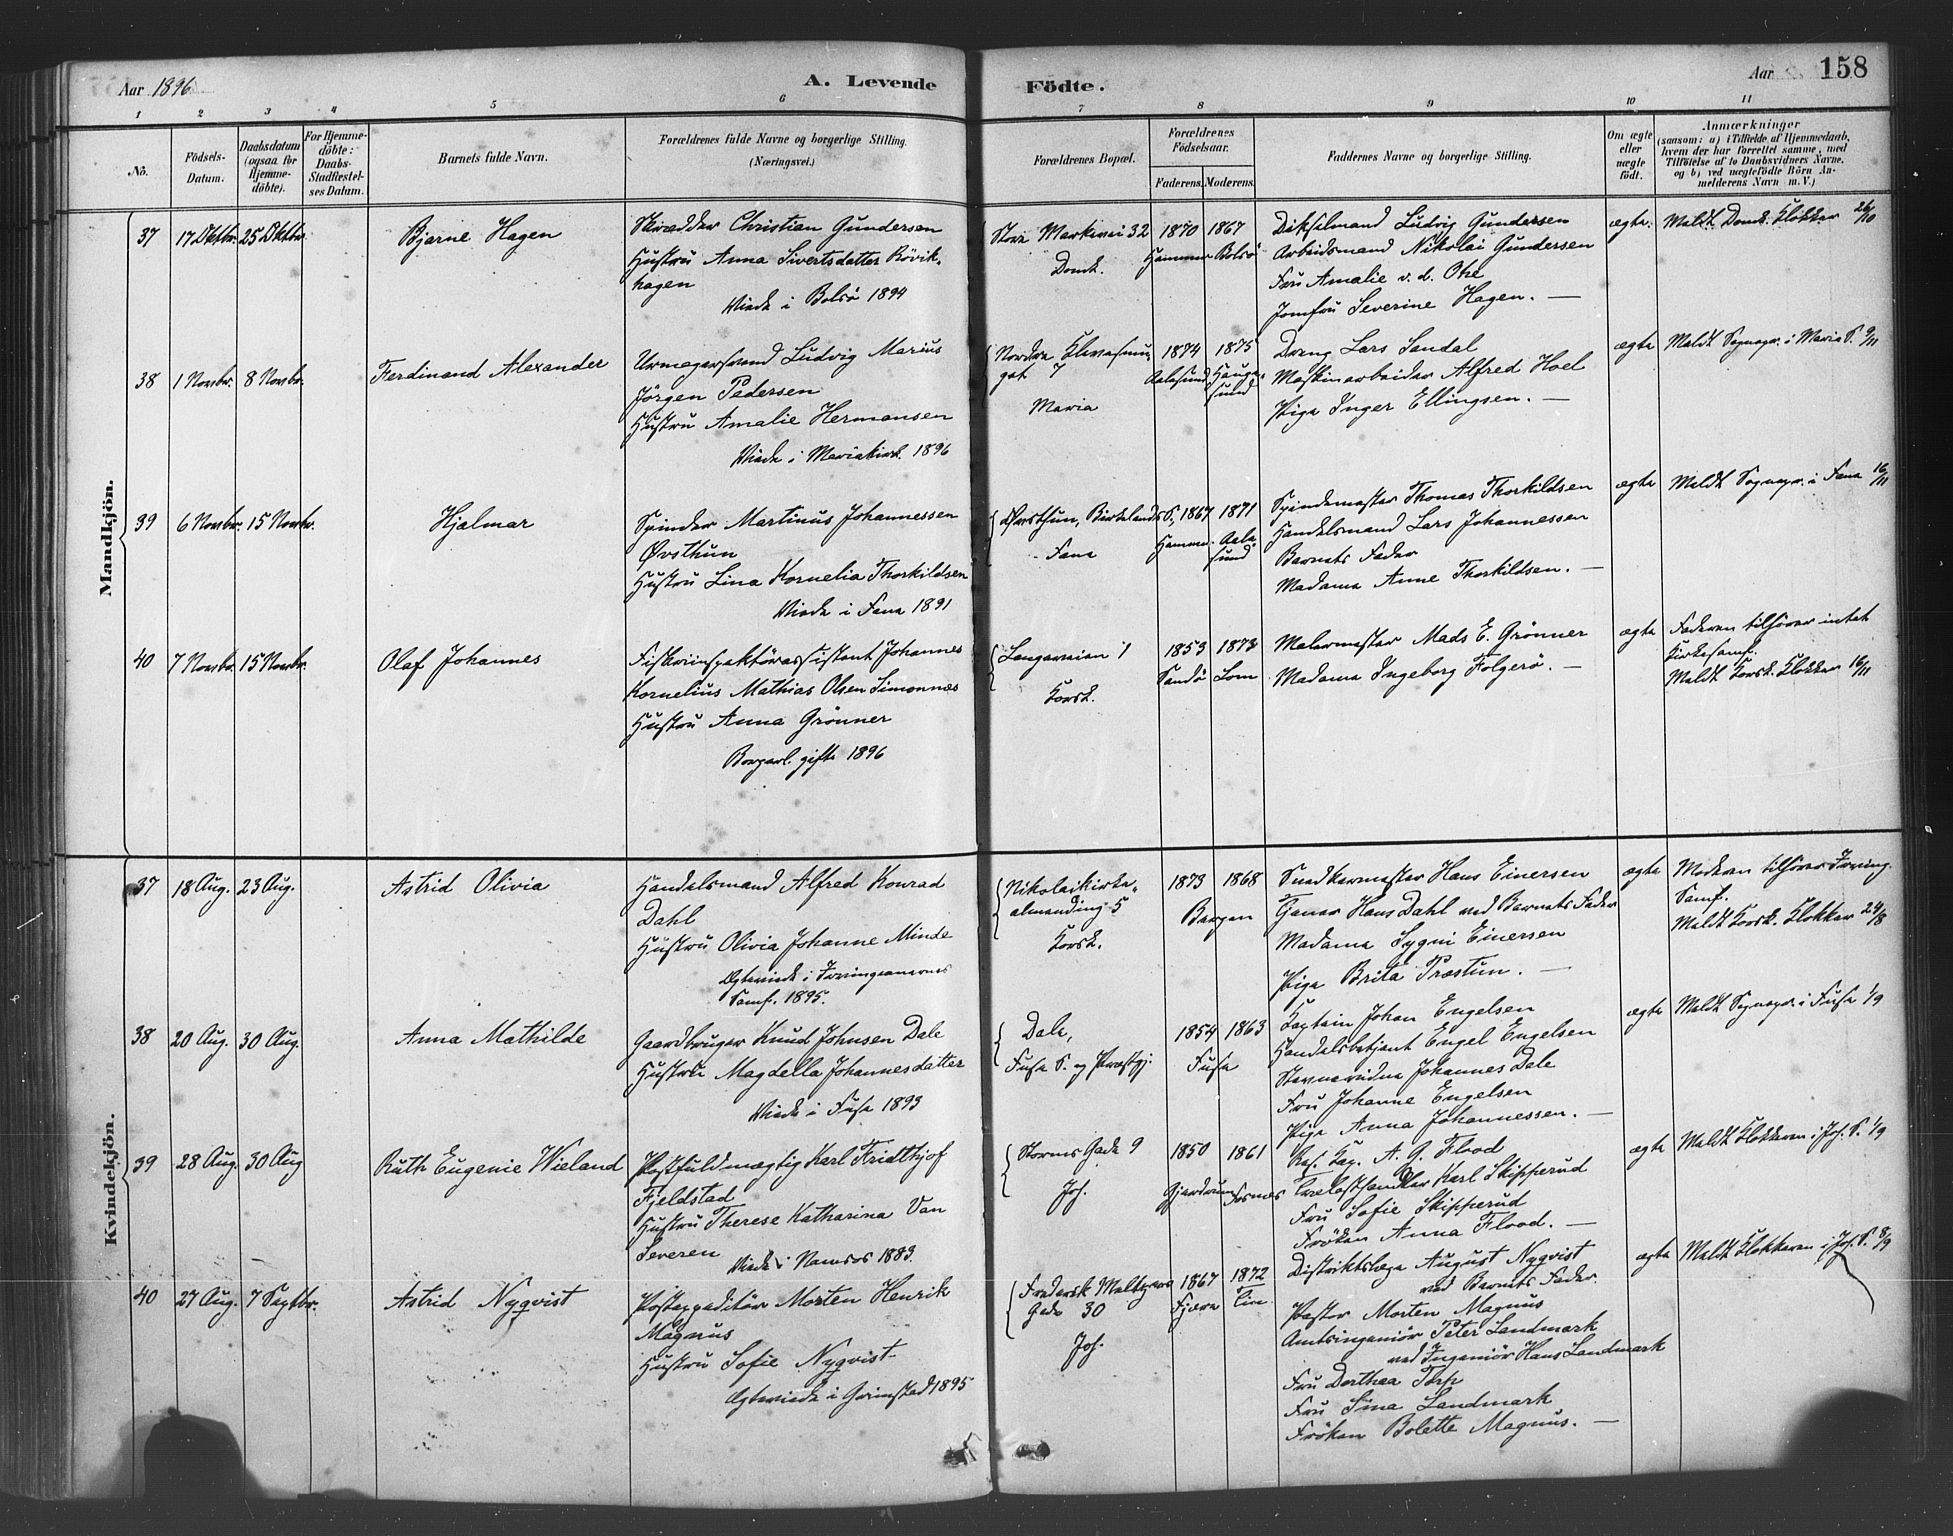 Aar 1896
A. Levende
Födte.
Aar
158
1 2 3 4 5 6 7 8 9 10 11
No.
Födsels-
Datum.
Daabsdatum
(ogsaa for
Hjemme-
döbte).
For Hjemme-
döbte:
Daabs-
Stadfæstel-
ses Datum.
Barnets fulde Navn.
Forældrenes fulde Navne og borgerlige Stilling.
(Næringsvei.)
Forældrenes Bopæl.
Forældrenes
Födselsaar.
Faderens. Moderens.
Faddernes Navne og borgerlige Stilling.
Om ægte
eller
uægte
födt.
Anmærkninger
(saasom: a) i Tilfælde af Hjemmedaab,
hvem der har forrettet samme, med
Tilföielse af to Daabsvidners Navne,
og b) ved uægtefödte Börn An-
melderens Navn m. V.)
Mandkjön.
37 17 Oktbr. 25 Oktbr.
Bjarne Hagen
Skrædder Christian Gundersen
Hustru Anna Sivertsdatter Rövik-
hagen
Viede i Bolsö 1894
Store Markevei 32
Domk.
1870 1867
Hammer Bolsö
Ludvig Gundersen
Arbeidsmand Nikolai Gundersen
Fru Amalie v. d. Ohe
Jomfru Severine Hagen. —
ægte.
Meldt Domk. Klokker 26/10
38 1 Novbr. 8 Novbr.
Ferdinand Alexander
Urmagersvend Ludvig Marius
Jörgen Pedersen
Hustru Amalie Hermansen
Viede i Mariakirk. 1896
Nordre
gat 7
Maria
1874 1875
Aalesund Hauge-
sund
Dreng Lars Sandal
Maskinarbeider Alfred Hoel
Pige Inger Ellingsen. —
ægte
Meldt Sognepr. i Maria S. 9/11
39 6 Novbr. 15 Novbr.
Hjalmar
Spinder Martinus Johannessen
Øvsthun
Hustru Lina Kornelia Thorkildsen
Viede i Fana 1891
Øvsthun, Birkelands S.,
Fana
1867 1871
Hammer. Aale-
sund
Spindemester Thomas Thorkildsen
Handelsmand Lars Johannessen
Barnets Fader
Madame Anne Thorkildsen. —
ægte
Meldt Sognepr. i Fana 16/11
40 7 Novbr. 15 Novbr.
Olaf Johannes
Fiskeriinspektörassistent Johannes
Kornelius Mathias Olsen Simonnæs
Hustru Anna Grönner
Borgerl. gifte 1896
Langeveien 1
Korsk.
1853 1873
Sandö Lom
Malermester Mads E. Grönner
Madame Ingeborg Folgerö. —
ægte
Faderen tilhörer intet
Kirkesamf.
Meldt Korsk. Klokker 16/11
Kvindekjön.
37 18 Aug. 23 Aug.
Astrid Olivia
Handelsmand Alfred Konrad
Dahl
Hustru Olivia Johanne Minde
Ægteviede i Irvingeanernes
Samf. 1895.
Nikolaikirke-
almending 5
Korsk.
1873 1868
Bergen
Snedkermester Hans Einersen
Hans Dahl ved Barnets Fader
Madame Sygni Einersen
Pige Brita Præstun. —
ægte
Moderen tilhörer Irving.
Samf.
Meldt Korsk. Klokker 24/8
38 20 Aug. 30 Aug.
Anna Mathilde
Gaardbruger Knud Johnsen Dale
Hustru Magdella Johannesdatter
Viede i Fusa 1893
Dale,
Fusa S. og Præstgj.
1854 1863
Fusa
Kaptein Johan Engelsen
Handelsbetjent Engel Engelsen
Johannes Dale
Fru Johanne Engelsen
Pige Anna Johannessen. —
ægte
Meldt Sognepr. i Fusa 1/9
39 28 Aug. 30 Aug
Ruth Eugenie Wieland
Postfuldmægtig Karl Fridthjof
Fjeldstad
Hustru Therese Katharina Van
Severen
Viede i Namsos 1883.
Storms Gade 9
Joh.
1850 1861
Gjerdrum Fosnes
Res. Kap. A. G. Flood
Karl Skipperud
Fru Sofie Skipperud
Fröken Anna Flood. —
ægte
Meldt Klokkeren i Joh. S. 1/9
40 27 Aug. 7 Septbr.
Astrid Nyqvist
Postexpeditör Morten Henrik
Magnus
Hustru Sofie Nyqvist
Ægteviede i Grimstad 1895
Frederik Meltzers
Gade 30
Joh.
1867 1872
Fjære
Distriktslæge August Nyqvist
ved Barnets Fader
Pastor Morten Magnus
Amtsingeniör Peter Landmark
ved Ingeniör Hans Landmark
Fru Dorthea Torp
Fru Sina Landmark
Fröken Bolette Magnus. —
ægte
Meldt Klokkeren i Joh. S. 8/9